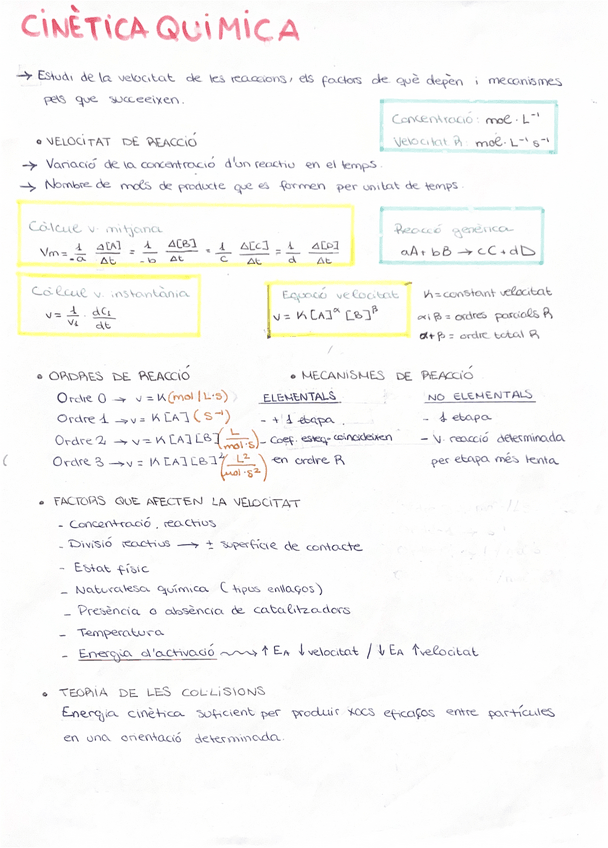 CINÈTICA QUIMICA
→ Estudi de la velocitat de les reaccions, els factors de què depèn i mecanismes
pels que succeeixen.
Concentració: mol·L⁻¹
Velocitat R: mol·L⁻¹ s⁻¹
• VELOCITAT DE REACCIÓ
→ Variació de la concentració d'un reactiu en el temps.
→ Nombre de mols de producte que es formen per unitat de temps.
Càlcul v. mitjana
Vm = 1/-a Δ[A]/Δt = 1/-b Δ[B]/Δt = 1/c Δ[C]/Δt = 1/d Δ[D]/Δt
Reacció genèrica
aA + bB → cC + dD
Càlcul v. instantània
v = 1/Vi · dCi/dt
Equació velocitat
v = K [A]^α [B]^β
K = constant velocitat
α i β = ordres parcials R
α + β = ordre total R
• ORDRES DE REACCIÓ
Ordre 0 → v = K (mol/L·s)
Ordre 1 → v = K [A] (s⁻¹)
Ordre 2 → v = K [A] [B] (L/mol·s)
Ordre 3 → v = K [A] [B]² (L²/mol·s²)
• MECANISMES DE REACCIÓ
ELEMENTALS
- + 1 etapa.
- Coef. esteq. coincideixen
en ordre R
NO ELEMENTALS
- 1 etapa
- V. reacció determinada
per etapa més lenta
• FACTORS QUE AFECTEN LA VELOCITAT
- Concentració, reactius
- Divisió reactius → ± superfície de contacte
- Estat físic
- Naturalesa química (tipus enllaços)
- Presència o absència de catalitzadors
- Temperatura
- Energia d'activació ⇝ ↑ EA ↓ velocitat / ↓ EA ↑ velocitat
• TEORIA DE LES COL·LISIONS
Energia cinètica suficient per produir xocs eficaços entre partícules
en una orientació determinada.